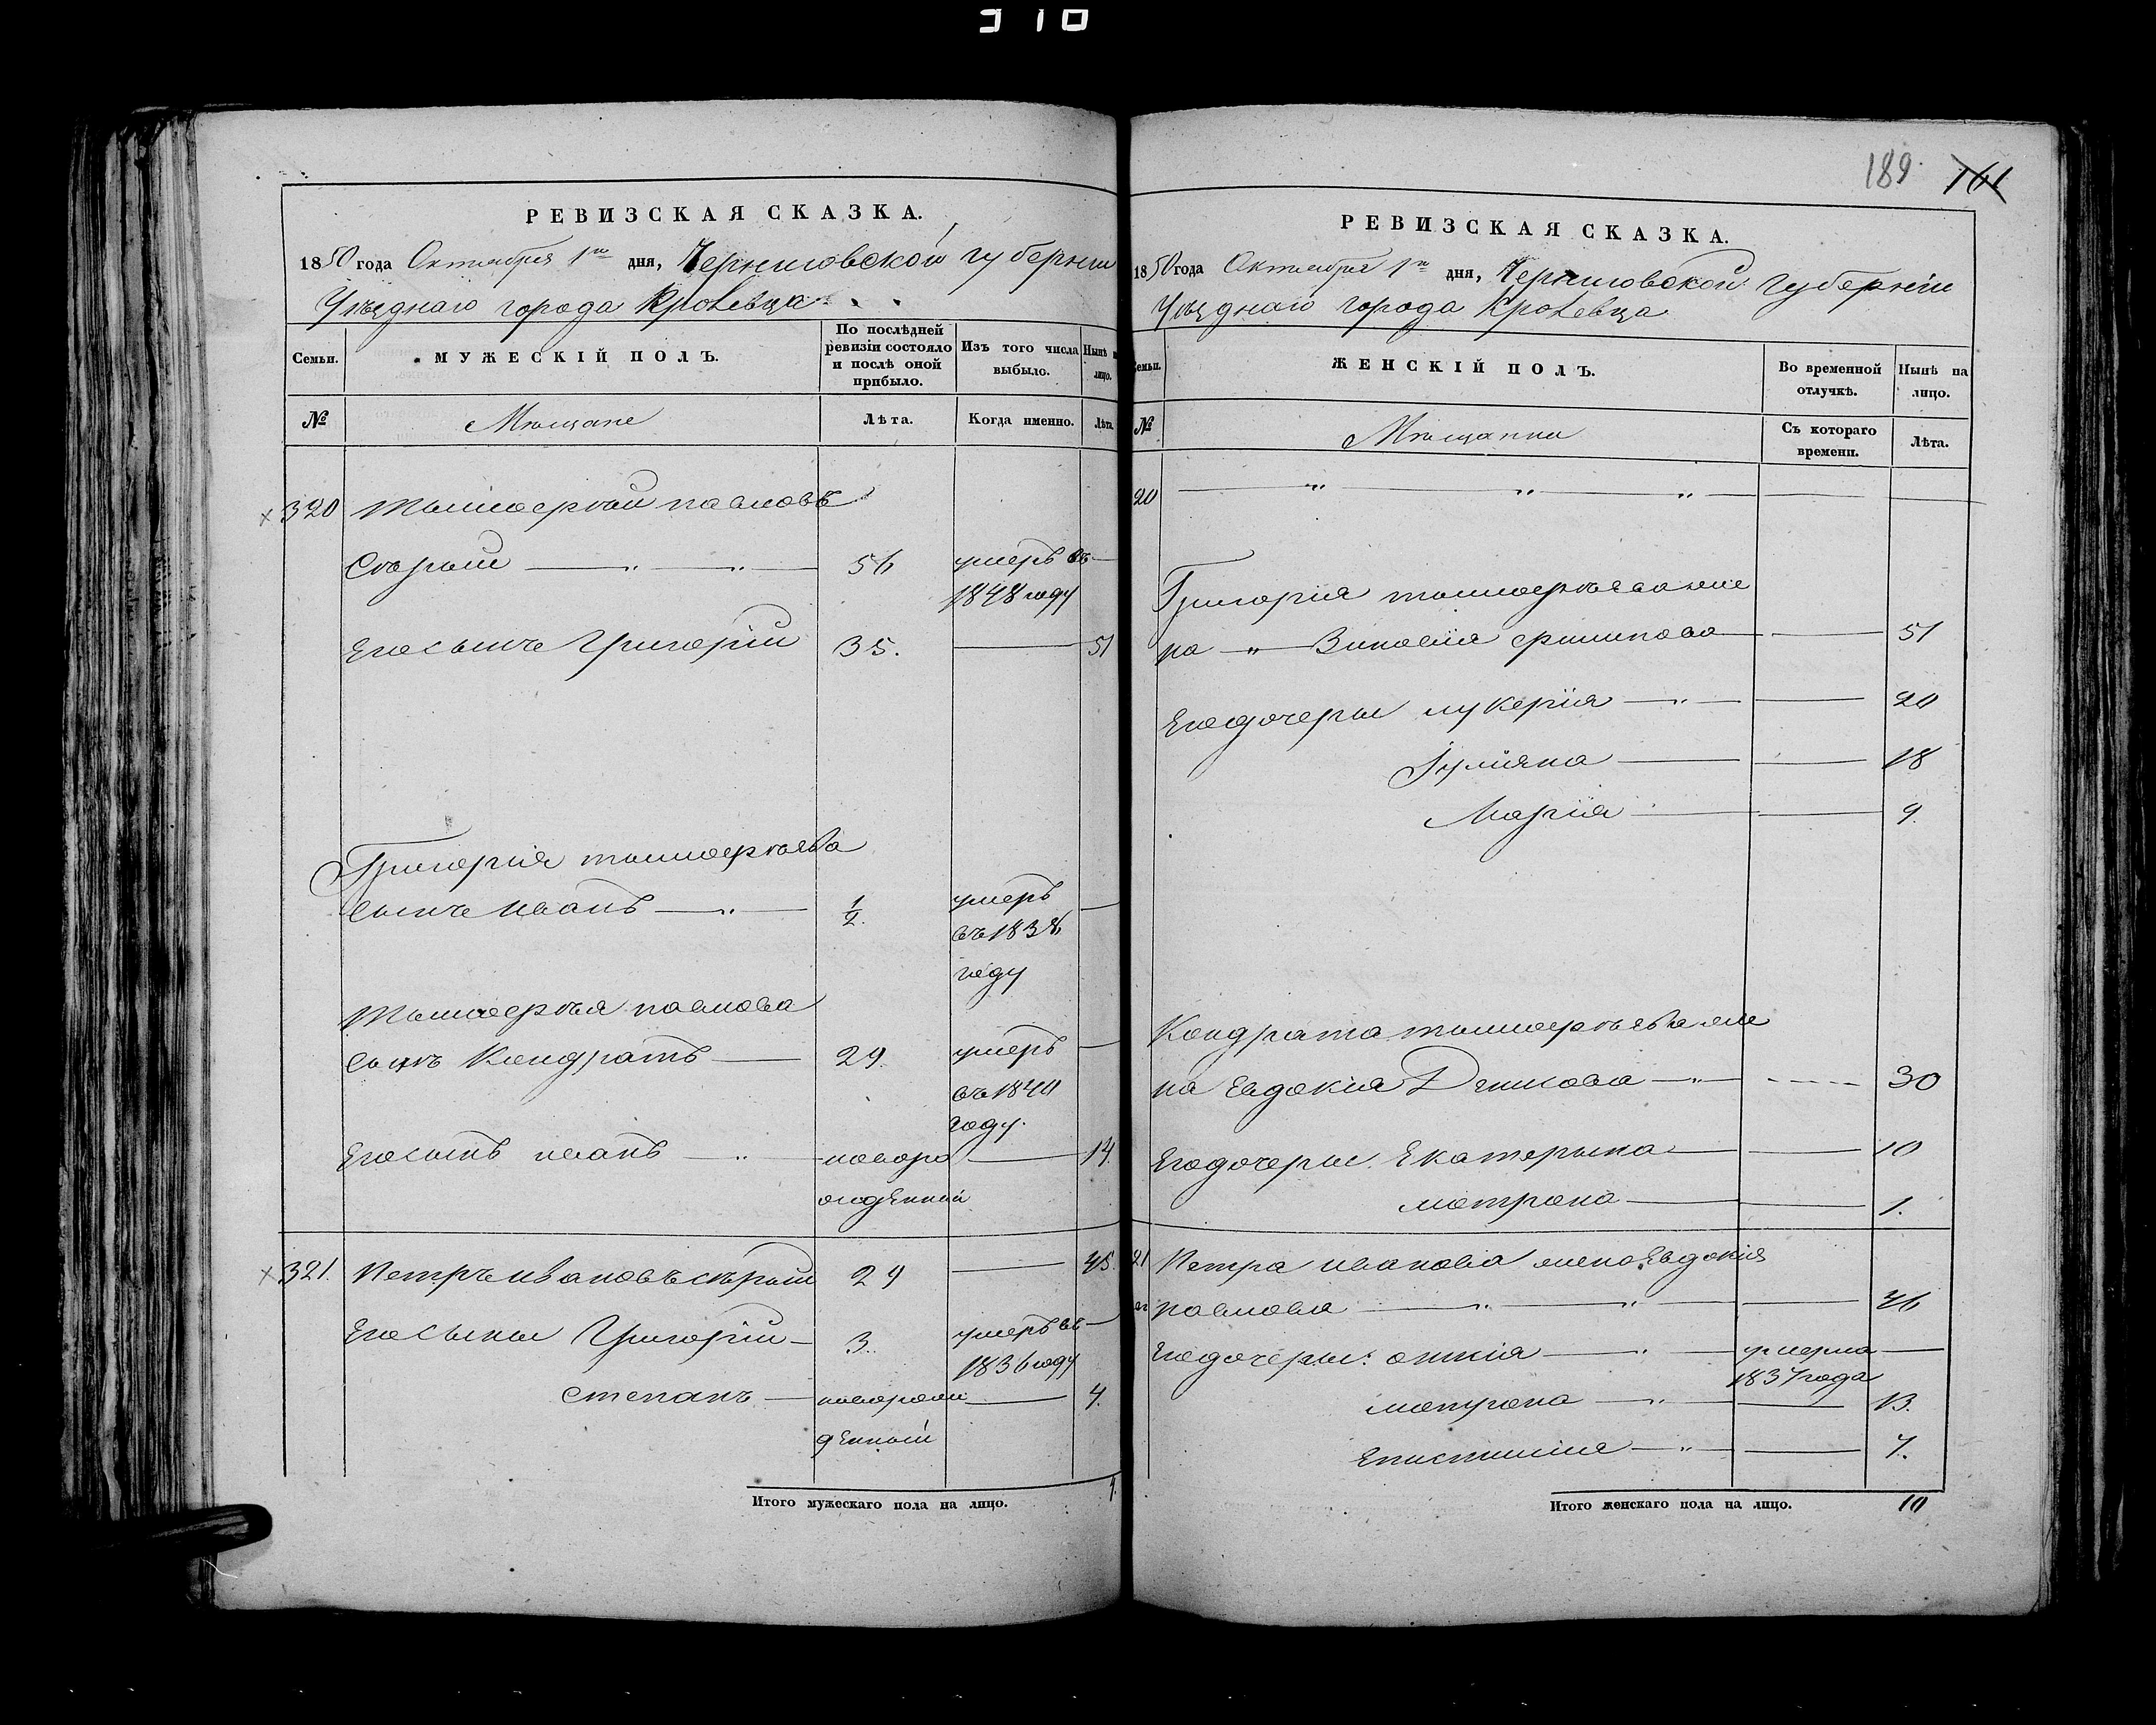 310
РЕВИЗСКАЯ СКАЗКА.
1850 года Октября 1го дня, Черниговской губерніи
Уѣзднаго города Кролевца
Семьи.
МУЖЕСКІЙ ПОЛЪ.
По послѣдней ревизіи состояло и послѣ оной прибыло.
Изъ того числа выбыло.
Нынѣ на лицо.
№
Мѣщане
Лѣта.
Когда именно.
Лѣта.
320 Тимоерѣй павловъ
Сѣрый 56 умеръ въ
1848 году
Его сынъ Григорій 35. 51
Григорія тимоерѣева
сынъ иванъ 1/2. умеръ
въ 1838
году
Тимоерѣя павлова
сынъ Кондратъ 29. умеръ
въ 1840
году.
Его сынъ иванъ новоро 14.
жденный
321. Петръ ивановъ сѣрый 29 45.
Его сыны Григорій 3. умеръ въ
1836 году
степанъ новорож 4.
денный
Итого мужескаго пола на лицо.
189. 161
РЕВИЗСКАЯ СКАЗКА.
1850 года Октября 1го дня, Черниговской Губерніи
Уѣзднаго города Кролевца
Семьи.
ЖЕНСКІЙ ПОЛЪ.
Во временной отлучкѣ.
Нынѣ на лицо.
№
Мѣщанки
Съ котораго времени.
Лѣта.
20
Григорія тимоерѣева же
на Зиновія 51
Его дочеры лукерія 20
Іуліяна 18
Марія 9.
Кондрата тимоерѣева же
на Евдокія 30
Его дочеры Екатерына 10
матрона 1.
21 Петра иванова жена Евдокія
павлова 46
Его дочеры: умерла
1837 года
матрона 13.
Епистимія 7.
Итого женскаго пола на лицо. 10